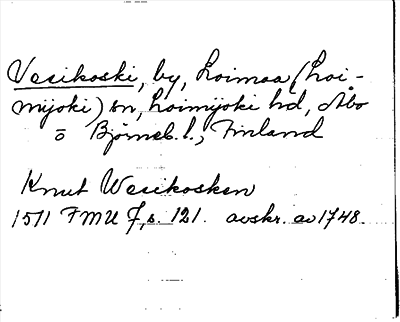 Vesikoski, by, Loimaa (Loi-
mijoki) sn, Loimijoki hd, Åbo
o Björneb. l., Finland
Knut Wesikosken
1511 FMU 7, s. 121. avskr. av 1748.